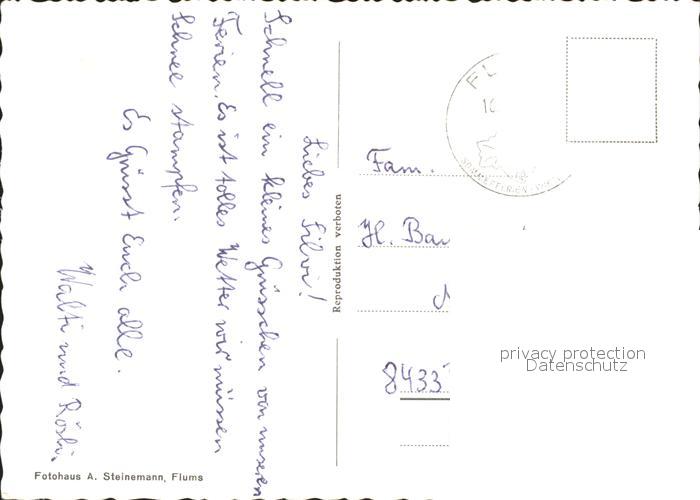 Liebes Silvi!
Schnell ein kleines Grüsschen von unseren
Ferien. Es ist tolles Wetter wir müssen
Schnee stampfen.
Es Grüsst Euch alle.
Walti und Rösli.
Reproduktion verboten
Fotohaus A. Steinemann, Flums
FL
Fam.
H. Bau
8433
privacy protection
Datenschutz